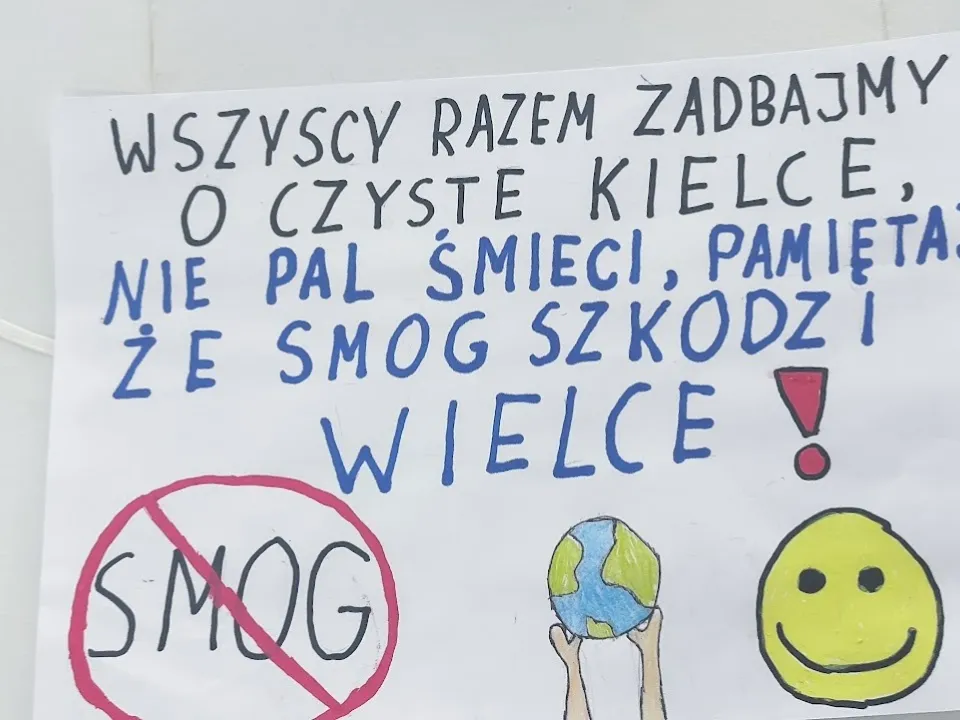 WSZYSCY RAZEM ZADBAJMY
O CZYSTE KIELCE,
NIE PAL ŚMIECI, PAMIĘTAJ
ŻE SMOG SZKODZI
WIELCE!
SMOG